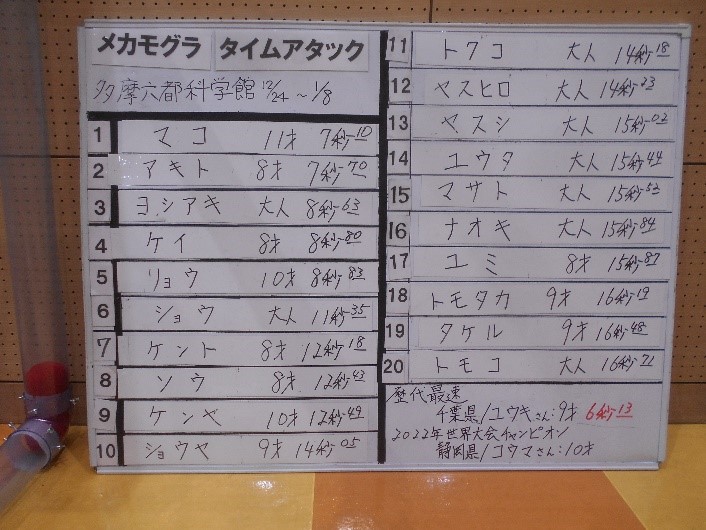 メカモグラ タイムアタック
多摩六都科学館 12/24 ~ 1/8
1 マコ 11才 7秒10
2 アキト 8才 7秒70
3 ヨシアキ 大人 8秒63
4 ケイ 8才 8秒80
5 リョウ 10才 8秒83
6 ショウ 大人 11秒35
7 ケント 8才 12秒18
8 ソウ 8才 12秒43
9 ケンヤ 10才 12秒49
10 ショウヤ 9才 14秒05
11 トワコ 大人 14秒18
12 ヤスヒロ 大人 14秒33
13 ヤスシ 大人 15秒02
14 ユウタ 大人 15秒44
15 マサト 大人 15秒53
16 ナオキ 大人 15秒84
17 ユミ 8才 15秒87
18 トモタカ 9才 16秒19
19 タケル 9才 16秒48
20 トモコ 大人 16秒71
歴代最速
千葉県/ユウキさん:9才 6秒13
2022年世界大会チャンピオン
静岡県/コウマさん:10才